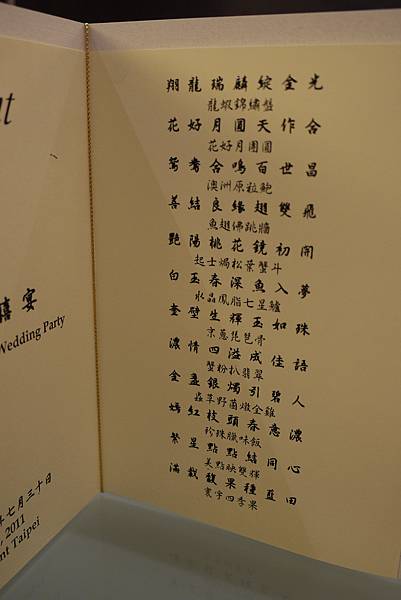 nt
禧宴
Wedding Party
年七月三十日
, 2011
nt Taipei
翔龍瑞麟綻金光
龍蝦錦繡盤
花好月圓天作合
花好月團圓
鴛鴦合鳴百世昌
澳洲原粒鮑
善結良緣翅雙飛
魚翅佛跳牆
艷陽桃花鏡初開
起士焗松葉蟹斗
白玉春深魚入夢
水晶鳳脂七星鱸
奎壁生輝玉如珠
京蔥琵琶骨
濃情四溢成佳語
蟹粉扒翡翠
金盞銀燭引碧人
蟲草野菌燉金雞
嫣紅枝頭春意濃
珍珠臘味飯
繁星點點結同心
美點映雙輝
滿載馥果種藍田
寰宇四季果